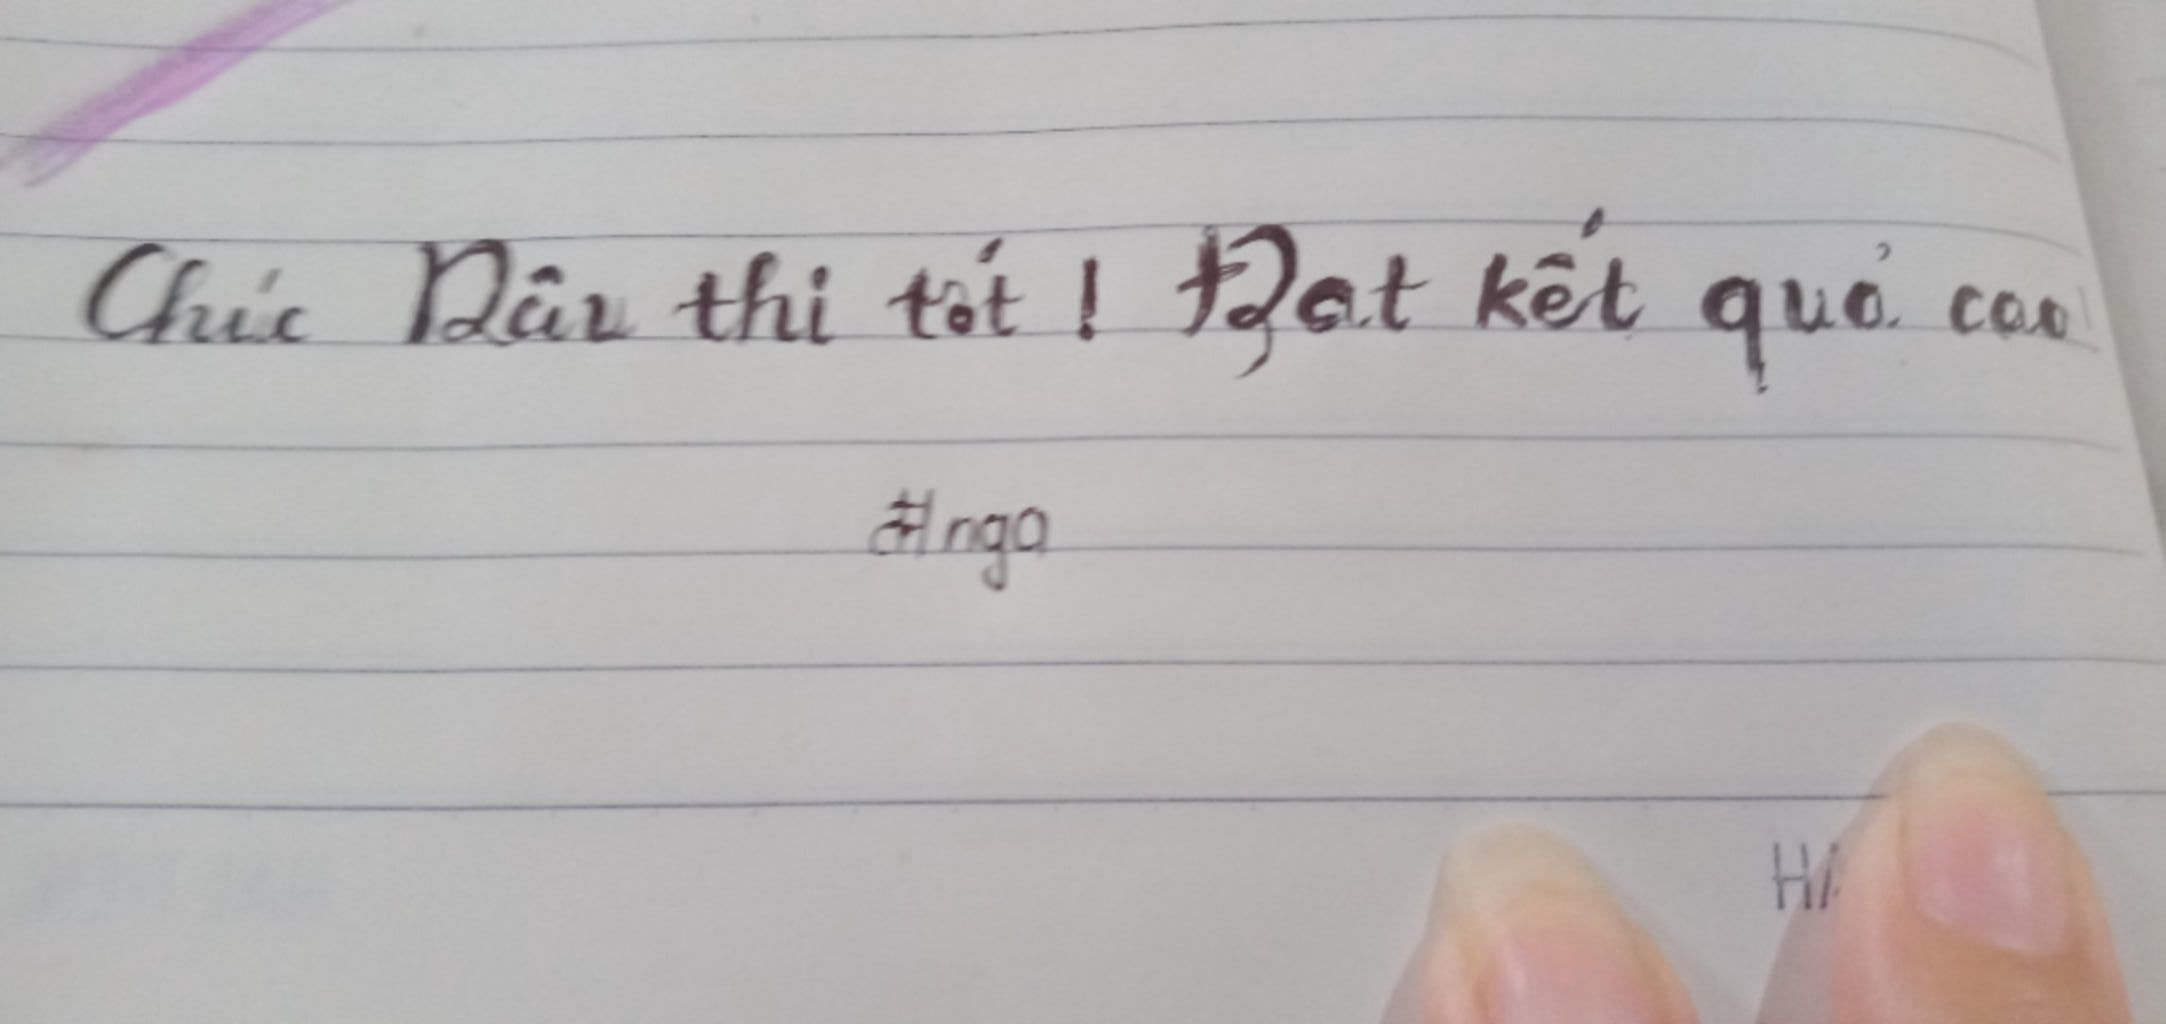 Chúc Dâu thi tốt ! Đạt kết quả cao
#nga
HA